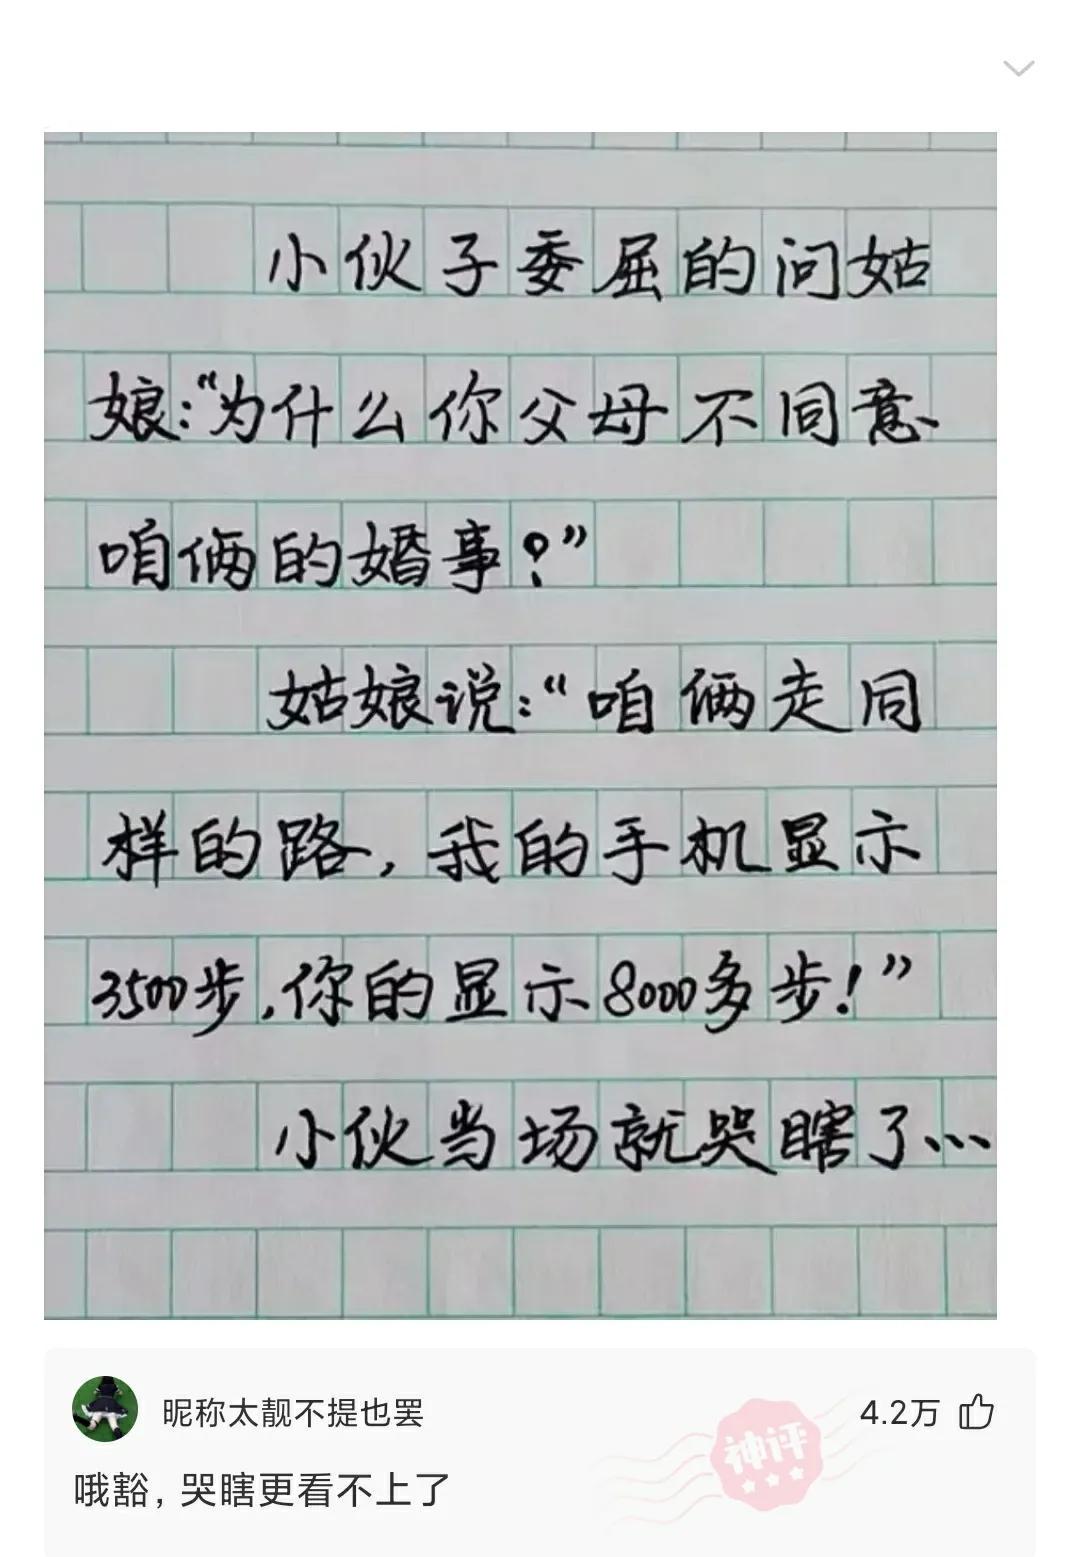 小伙子委屈的问姑
娘:“为什么你父母不同意
咱俩的婚事?”
姑娘说:“咱俩走同
样的路,我的手机显示
3500步,你的显示8000多步!”
小伙当场就哭瞎了...
昵称太靓不提也罢
4.2万
神评
哦豁,哭瞎更看不上了